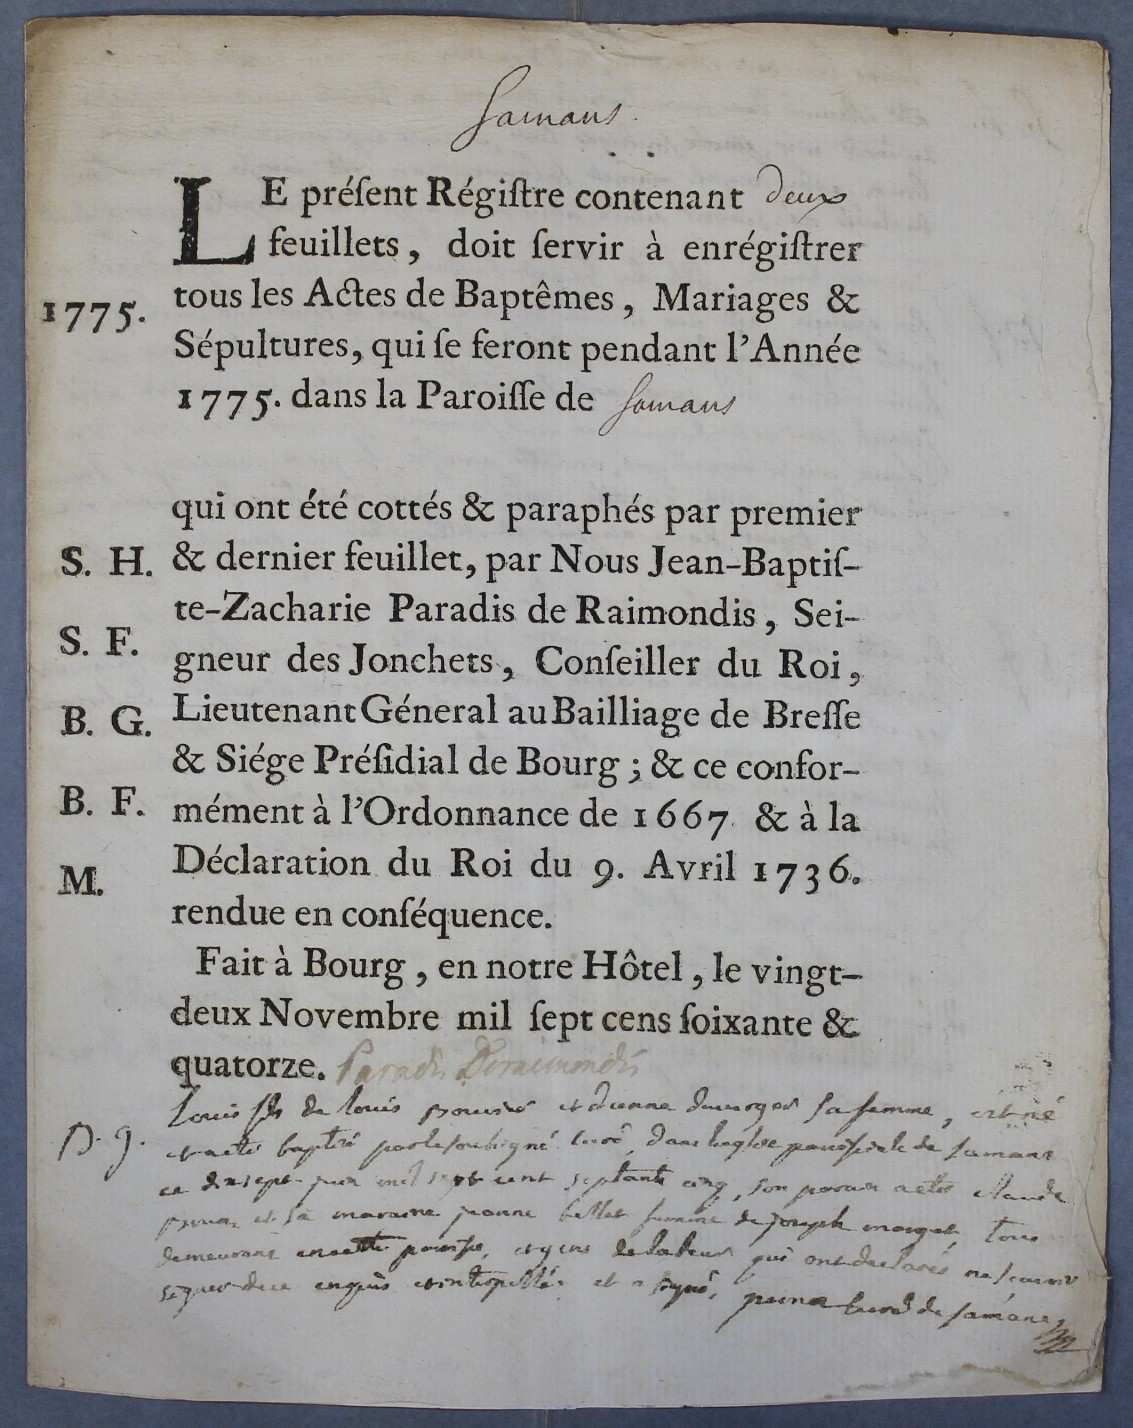 Samans
LE préſent Régiſtre contenant deux
feuillets, doit ſervir à enrégiſtrer
tous les Actes de Baptêmes, Mariages &
1775.
Sépultures, qui ſe feront pendant l'Année
1775. dans la Paroiſſe de Samans
qui ont été cottés & paraphés par premier
S. H.
& dernier feuillet, par Nous Jean-Baptiſ-
te-Zacharie Paradis de Raimondis, Sei-
S. F.
gneur des Jonchets, Conſeiller du Roi,
Lieutenant Géneral au Bailliage de Breſſe
B. G.
& Siége Préſidial de Bourg; & ce confor-
B. F.
mément à l'Ordonnance de 1667 & à la
Déclaration du Roi du 9. Avril 1736.
M.
rendue en conſéquence.
Fait à Bourg, en notre Hôtel, le vingt-
deux Novembre mil ſept cens ſoixante &
quatorze. Paradis Deraimondis
Louis fils de louis et sa femme, est né
B. g.
et a eté baptisé par le soubsigné curé, dans leglise paroissiale de samans
ce dixsept juin mil sept cent septante cinq, son parain a eté claude
et sa maraine jeanne femme de joseph tous
demeurant en cette paroisse, et gens de labeur qui ont declarés ne scavoir
signer de ce enquis et interpellés et a signé, curé de samans,